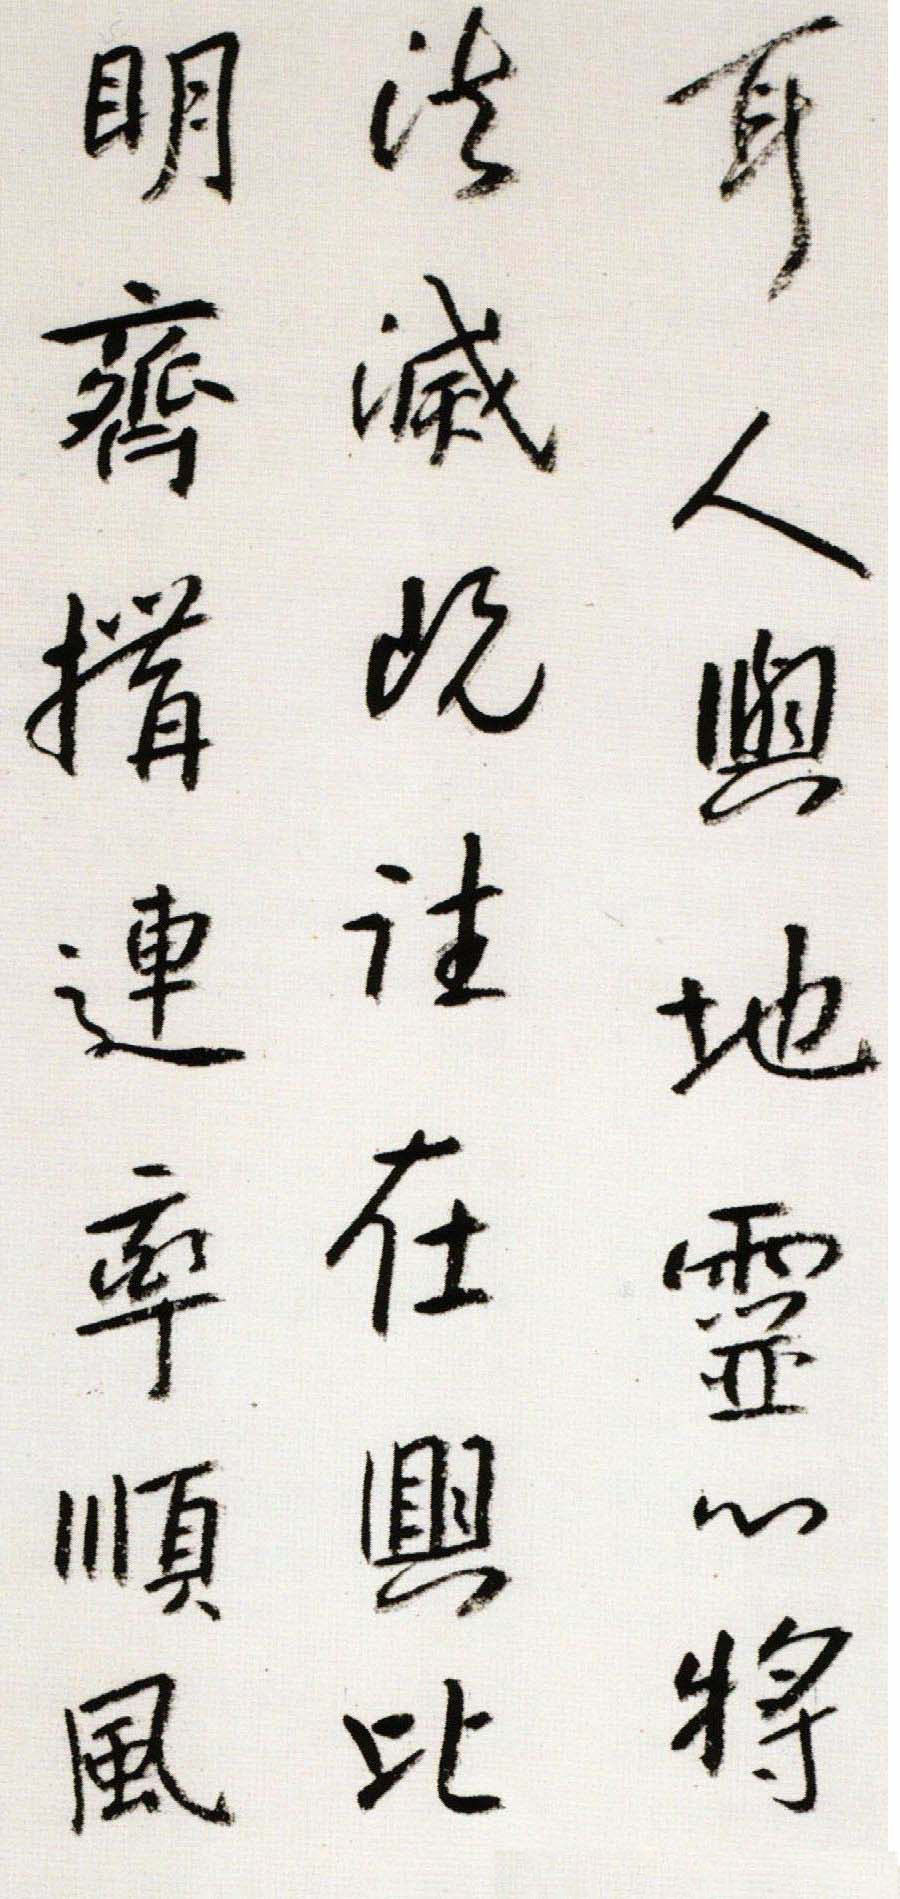 耳人與地靈心將
法滅既往在興比
明齊揖連率順風